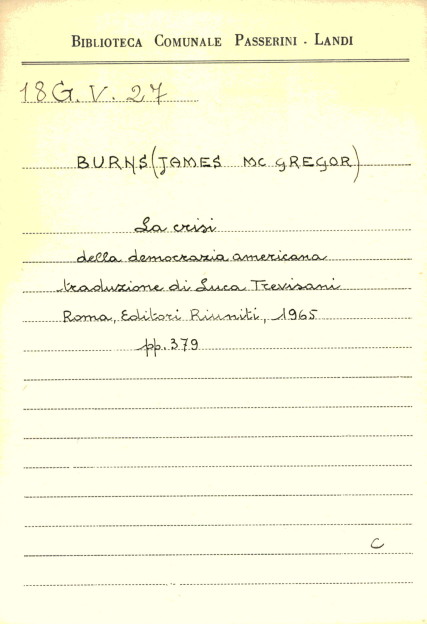 BIBLIOTECA COMUNALE PASSERINI - LANDI
18G. V. 27
BURNS (JAMES MC GREGOR)
La crisi
della democrazia americana
traduzione di Luca Trevisani
Roma, Editori Riuniti, 1965
pp. 379
C